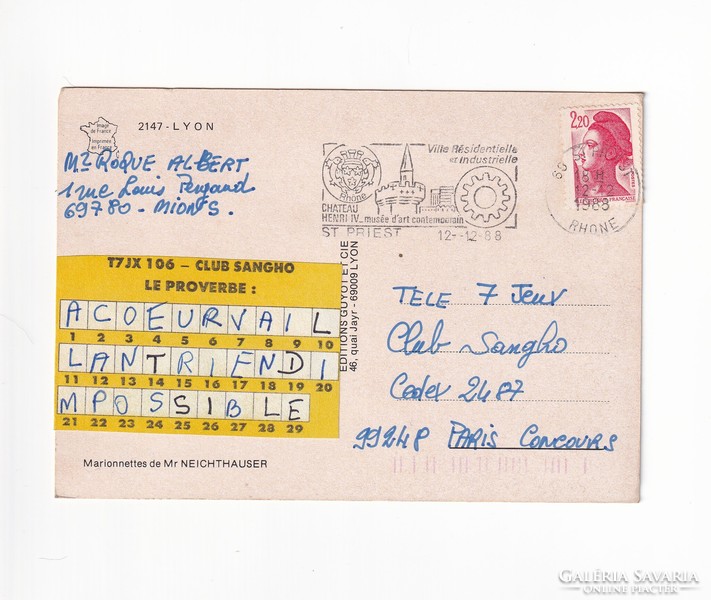 Image
de France
Imprimée
en France
2147 - LYON
Mr ROQUE ALBERT
1 rue Louis
69780 - MIONS.
T7JX 106 – CLUB SANGHO
LE PROVERBE :
A C O E U R V A I L
1 2 3 4 5 6 7 8 9 10
L A N T R I E N D I
11 12 13 14 15 16 17 18 19 20
M P O S S I B L E
21 22 23 24 25 26 27 28 29
Marionnettes de Mr NEICHTHAUSER
EDITIONS GUYOT ET CIE
46, quai Jayr - 69009 LYON
Ville Résidentielle
et Industrielle
Rhône
CHATEAU
HENRI IV_ musée d'art contemporain
ST PRIEST 12--12-88
2,20
FRANÇAISE
69
15 H
12-12
1988
RHONE
TELE 7 Jeux
Club Sangho
Cedex 2487
99248 PARIS CONCOURS
GALÉRIA SAVARIA
ONLINE PIACTÉR